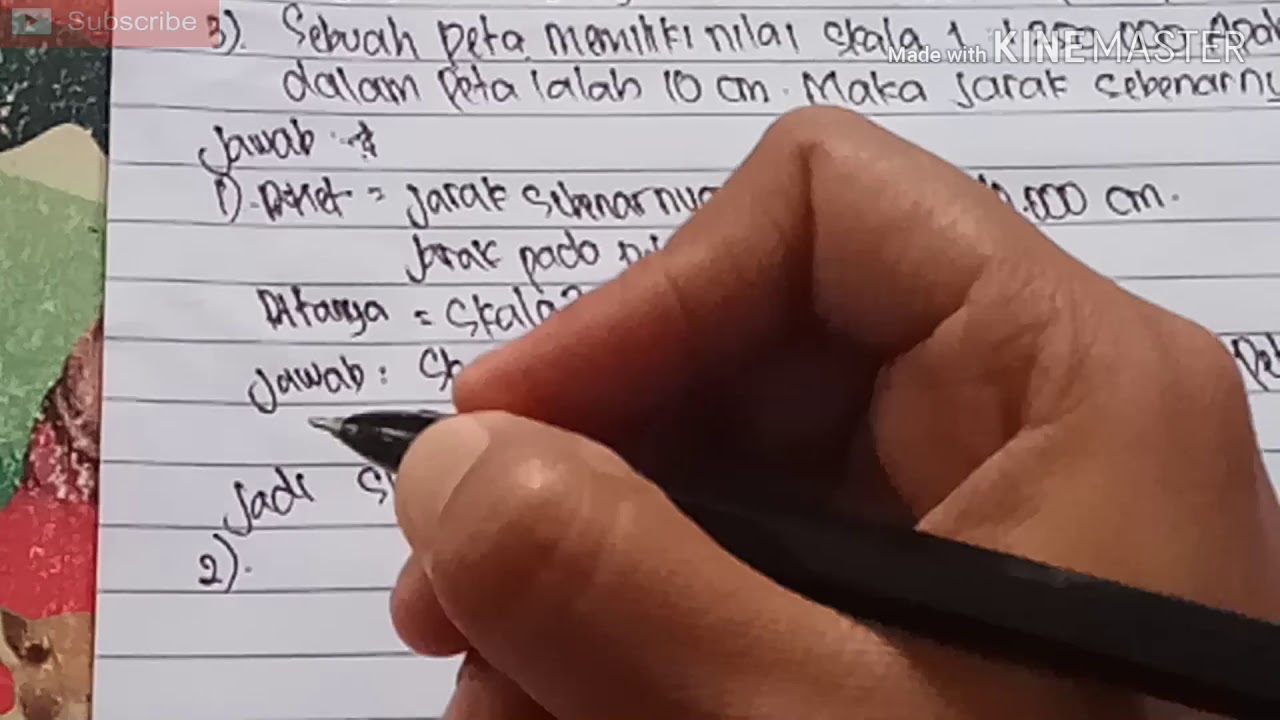 Subscribe
3). Sebuah peta memiliki nilai skala 1
Made with KINEMASTER
dalam peta ialah 10 cm. Maka jarak sebenarny
Jawab
1). Diket = jarak sebenarnya .000 cm.
jarak pada
Ditanya = Skala?
Jawab:
Jadi
2).